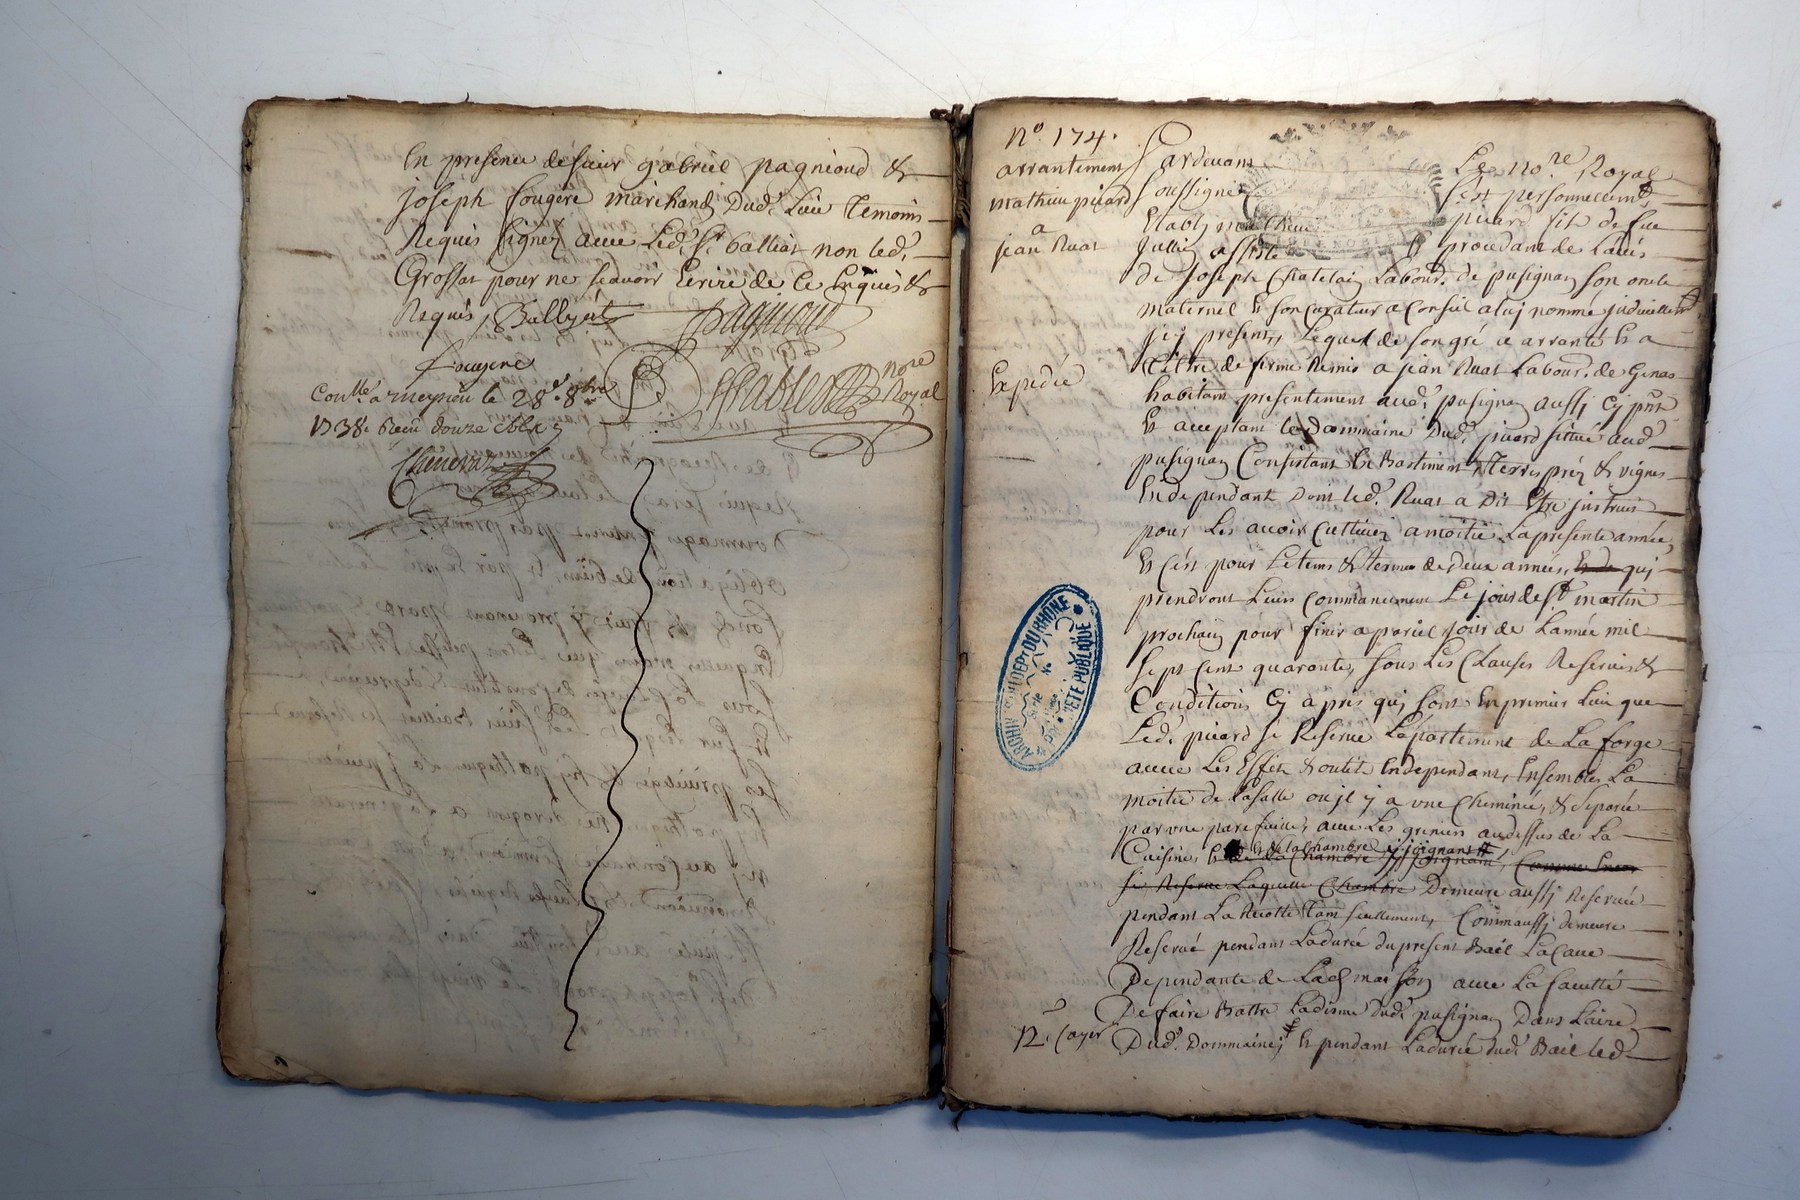 En presence de sieur gabriel pagnioud &
joseph fougere marchands dud. Lieu temoins
Requis signez avec Led. Sr. balliat non led.
Grossat pour ne scavoir Ecrire de ce Enquis &
Requis, Ballyat pagnioud
fougere
nore Royal
Conlle. a meyzieu le 28e. 8bre
1738. Receu douze sols
N° 174.
arrantement
mathieu picard
a
jean Ruat
Expedié
Pardevant Le no.re Royal
soussigné s'est personnellemt.
Etably mathieu picard fils de feu
jullien assisté & procedant de L'avis
de joseph Chatelain Labour. de pusignan son oncle
maternel & son curateur a conseil a luj nommé judiciellemt.
icj present, Lequel de son gré a arranté & a
titre de ferme Remis a jean Ruat Labour. de Genas
habitant presentement aud. pusignan aussj cj pnt.
& acceptant le dommaine Dud. picard situé aud.
pusignan Consistant En Bastiment, Terres préz & vignes
En dependant dont led. Ruat a dit Etre jnstruit
pour Les avoir cultivez a moitié La presente année,
& c'est pour Le tems & terme de deux années, & de quj
prendront Leurs commancement Le jour de St martin
prochain pour finir a pariel jour de L'année mil
sept cent quarante, sous Les Clauses Reserves &
Conditions Cj apres quj sont En premier Lieu que
Led. picard se Reserve L'apartement de La forge
avec Les Effets & outils En dependant, Ensembles La
moitié de La salle ou jl y a une Cheminée, & separée
par une parefeuille, avec Les greniers au dessus de La
& de la chambre y joignant
Cuisine, & de La Chambre y joignant, Comme
se Reserve Laquelle Chambre Demeure aussj Reservée
pendant La Recolte tant seullement, Comm'aussj demeure
Reservé pendant La durée du present Bail La Cave
Dependante de Lad. maison avec La faculté
De faire Battre La disme dud. pusignan Dans L'aire
Dud. Dommaine, & pendant La durée dud. Bail led.
12e. Cayer
ARCHIVES DU DEPT DU RHONE
PROPRIETE PUBLIQUE